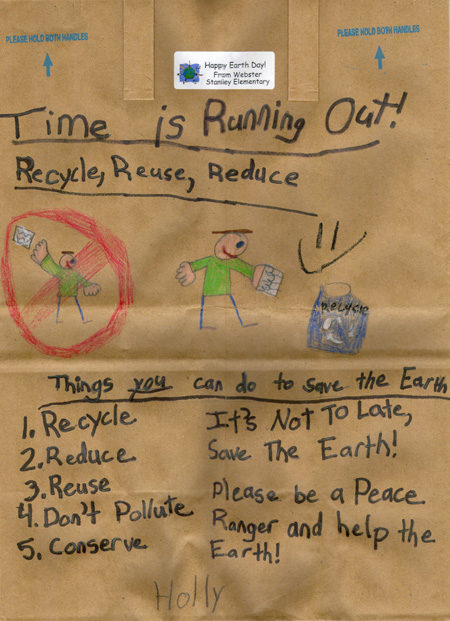 PLEASE HOLD BOTH HANDLES
PLEASE HOLD BOTH HANDLES
Happy Earth Day!
From Webster
Stanley Elementary
Time is Running Out!
Recycle, Reuse, Reduce
RECYCLE
Things you can do to save the Earth
1. Recycle
2. Reduce
3. Reuse
4. Don't Pollute
5. Conserve
It's Not To Late,
Save The Earth!
Please be a Peace
Ranger and help the
Earth!
Holly